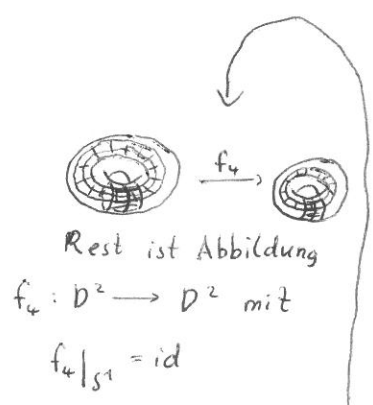 f₄
Rest ist Abbildung
f₄ : D² ⟶ D² mit
f₄|S¹ = id